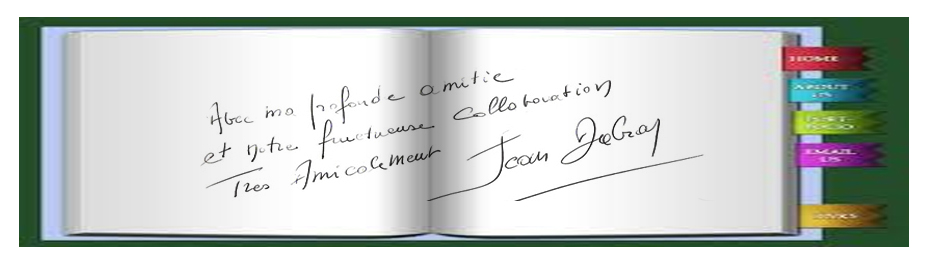 Avec ma profonde amitie
et notre fructueuse collaboration
Tres Amicalement Jean
HOME
ABOUT US
EMAIL US
LINKS